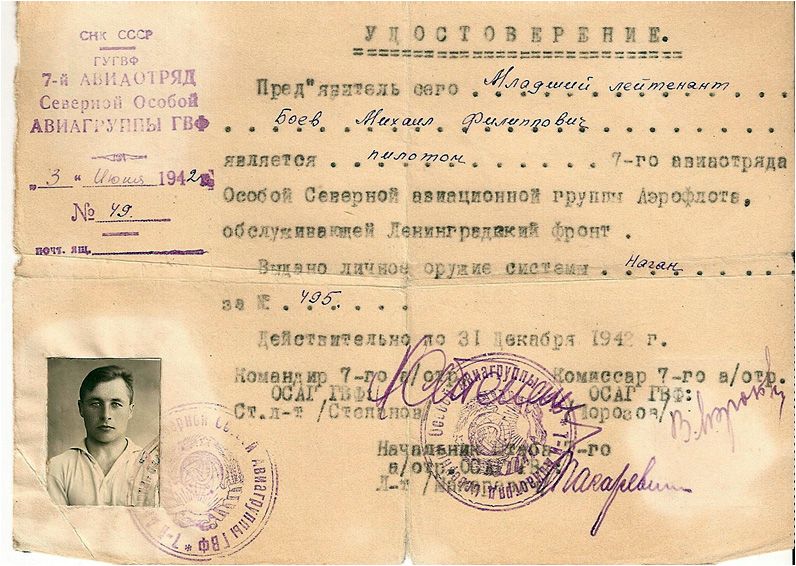 СНК СССР
ГУГВФ
7-й АВИАОТРЯД
Северной Особой
АВИАГРУППЫ ГВФ
„ 3 “ Июня 1942 г.
№ 49.
почт. ящ.
УДОСТОВЕРЕНИЕ.
Пред"явитель сего Младший лейтенант
Боев Михаил Филиппович
является . . пилотом . . . . . . 7-го авиаотряда
Особой Северной авиационной группы Аэрофлота,
обслуживающей Ленинградский фронт .
Выдано личное оружие системы . Наган
за № . 495.
Действительно по 31 Декабря 1942 г.
Командир 7-го а/отр.
ОСАГ ГВФ:
Ст.л-т /Степанов
Комиссар 7-го а/отр.
ОСАГ ГВФ:
/Морозов/
Начальник штаба 7-го
а/отр.ОСАГ ГВФ:
Л-т